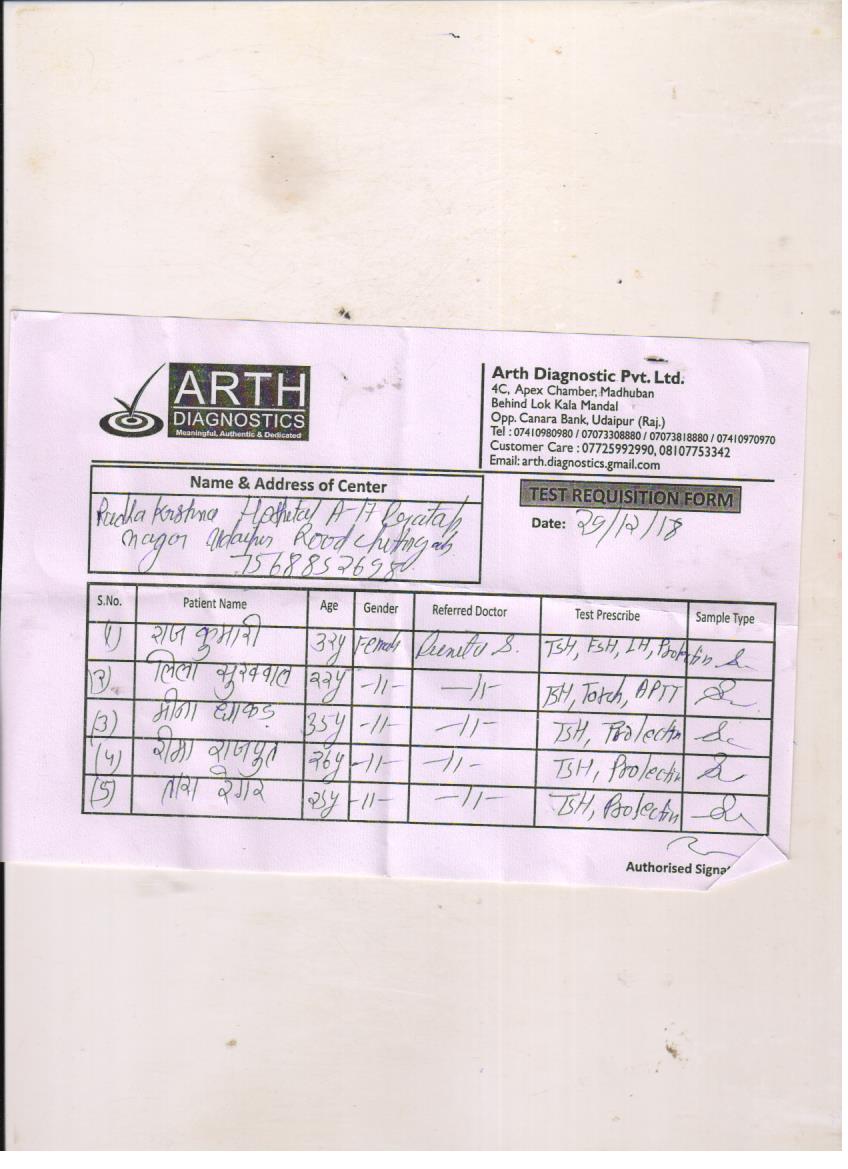 ARTH
DIAGNOSTICS
Meaningful, Authentic & Dedicated
Arth Diagnostic Pvt. Ltd.
4C, Apex Chamber, Madhuban
Behind Lok Kala Mandal
Opp. Canara Bank, Udaipur (Raj.)
Tel : 07410980980 / 07073308880 / 07073818880 / 07410970970
Customer Care : 07725992990, 08107753342
Email: arth.diagnostics.gmail.com
Name & Address of Center
TEST REQUISITION FORM
Radha Krishna Hospital
Date: 29/12/18
nagar Udaipur Road
7568852698
S.No. Patient Name Age Gender Referred Doctor Test Prescribe Sample Type
(1) राज कुमारी 32y Female TSH, FSH, LH, Prolectin
(2) लिला सुखवाल 22y -11- -11- TSH, Torch, APTT
(3) मीना धाकड़ 35y -11- -11- TSH, Prolectin
(4) सीमा राजपुत 26y -11- -11- TSH, Prolectin
(5) तारा रेगर 25y -11- -11- TSH, Prolectin
Authorised Signa